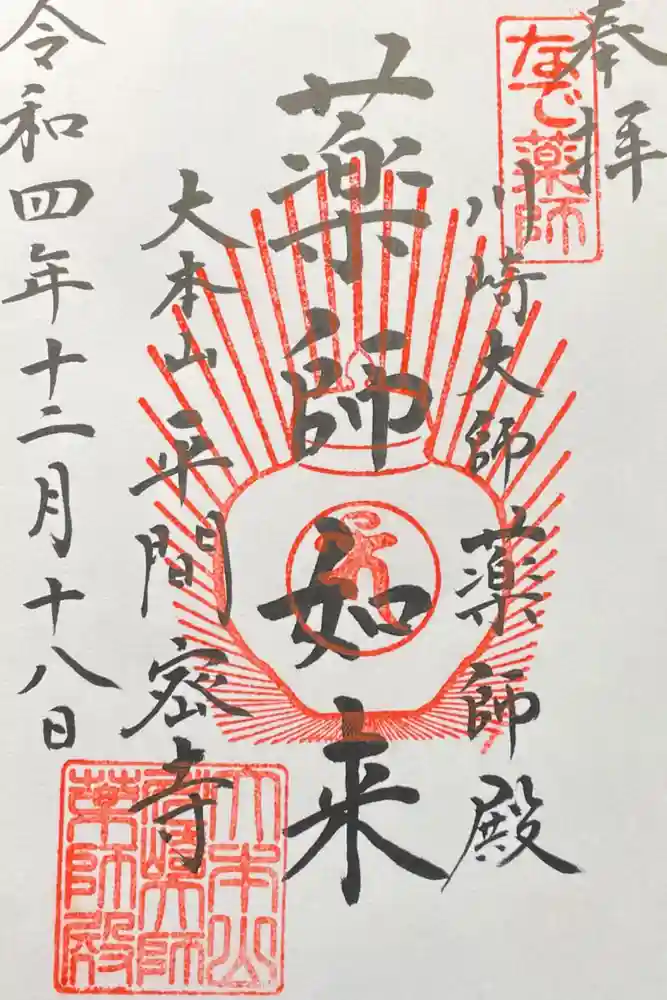 奉拝
なで薬師
川崎大師薬師殿
薬師如来
大本山平間密寺
令和四年十二月十八日
大本山
川崎大師
薬師殿